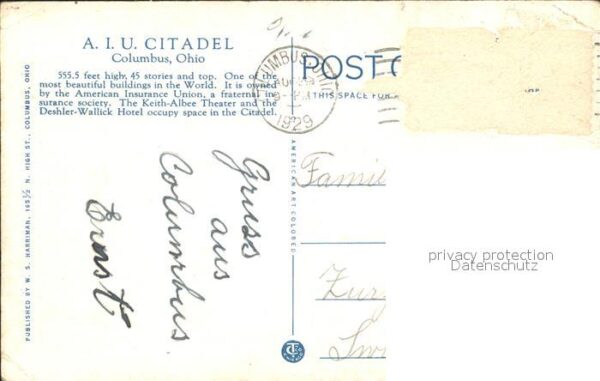 A. I. U. CITADEL
Columbus, Ohio
555.5 feet high, 45 stories and top. One of the
most beautiful buildings in the World. It is owned
by the American Insurance Union, a fraternal in-
surance society. The Keith-Albee Theater and the
Deshler-Wallick Hotel occupy space in the Citadel.
PUBLISHED BY W. S. HARRIMAN, 165½ N. HIGH ST., COLUMBUS, OHIO
Gruss
aus
Columbus
Ernst
AMERICAN ART COLORED
COLUMBUS, OHIO
1929
POST
THIS SPACE FOR
Famil
Zur
Sw
privacy protection
Datenschutz